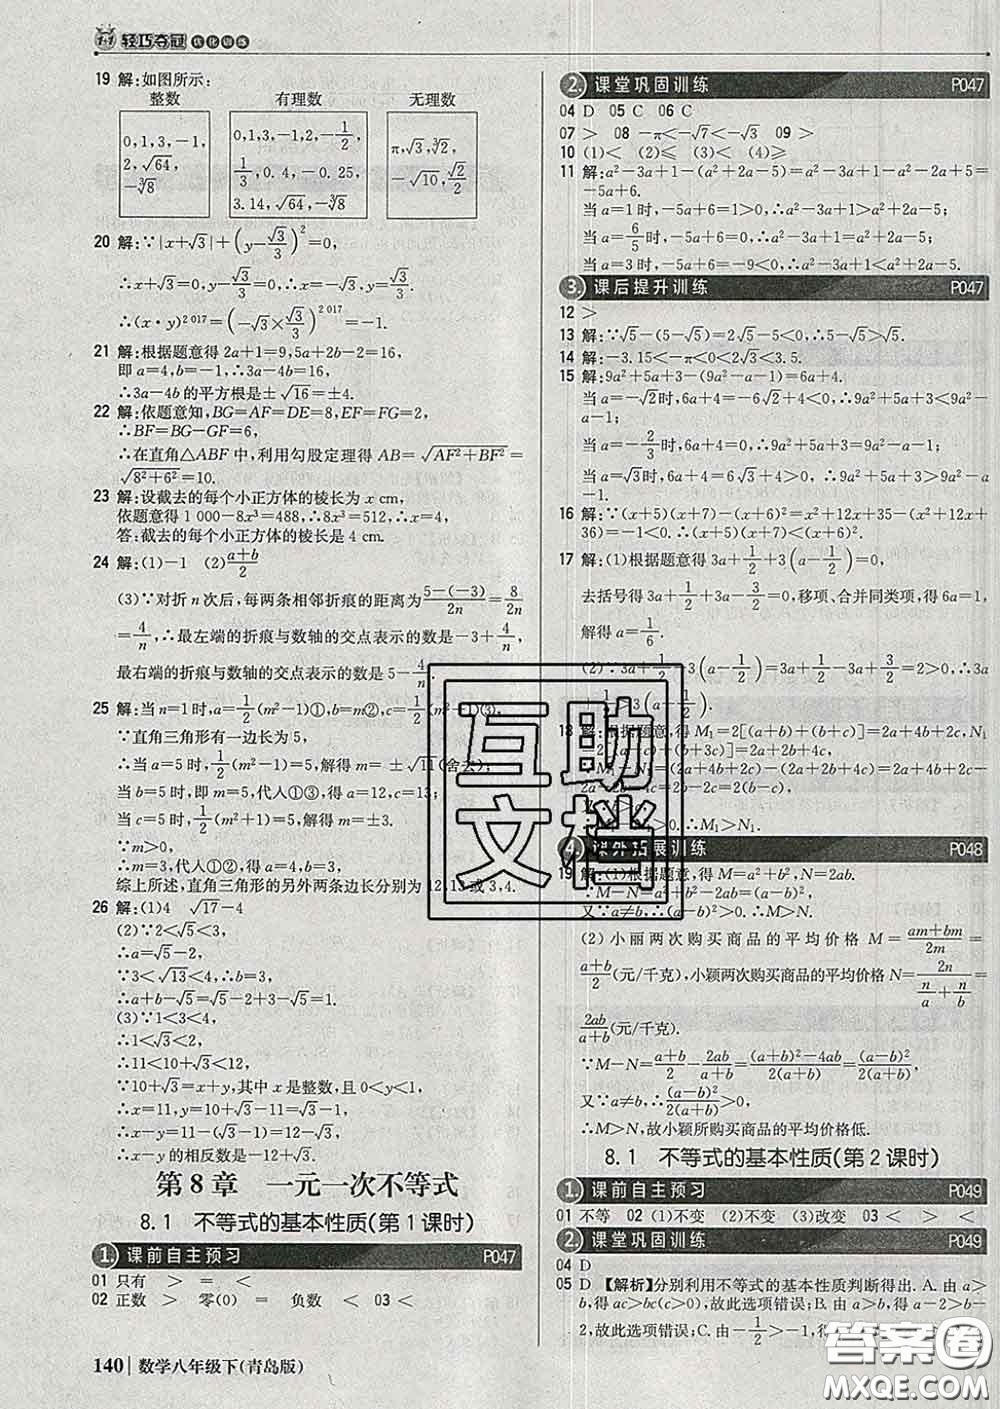 1+1 轻巧夺冠 优化训练
19 解:如图所示:
整数 有理数 无理数
0,1,3,-1, 2,√64, -∛8
0,1,3,-1,2,-1/2, 1/3,0.4,-0.25, 3.14,√64,-∛8
π,√3,∛2, -√10,√2/2
20 解:∵|x+√3|+(y-√3/3)²=0,
∴x+√3=0,y-√3/3=0,∴x=-√3,y=√3/3.
∴(x·y)^2 017=(-√3×√3/3)^2 017=-1.
21 解:根据题意得2a+1=9,5a+2b-2=16,
即a=4,b=-1,∴3a-4b=16,
∴3a-4b的平方根是±√16=±4.
22 解:依题意知,BG=AF=DE=8,EF=FG=2,
∴BF=BG-GF=6,
∴在直角△ABF中,利用勾股定理得AB=√(AF²+BF²)=
√(8²+6²)=10.
23 解:设截去的每个小正方体的棱长为x cm,
依题意得1 000-8x³=488,∴8x³=512,∴x=4,
答:截去的每个小正方体的棱长是4 cm.
24 解:(1)-1 (2)(a+b)/2
(3)∵对折n次后,每两条相邻折痕的距离为(5-(-3))/2n=8/2n
=4/n,∴最左端的折痕与数轴的交点表示的数是-3+4/n,
最右端的折痕与数轴的交点表示的数是5-4/n.
25 解:当n=1时,a=1/2(m²-1)①,b=m②,c=1/2(m²+1)③,
∵直角三角形有一边长为5,
∴当a=5时,1/2(m²-1)=5,解得m=±√11(舍去),
当b=5时,即m=5,代人①③,得a=12,c=13;
当c=5时,1/2(m²+1)=5,解得m=±3.
∵m>0,
∴m=3,代人①②,得a=4,b=3,
综上所述,直角三角形的另外两条边长分别为12,13或3,4.
26 解:(1)4 √17-4
(2)∵2<√5<3,
∴a=√5-2,
∵3<√13<4,∴b=3,
∴a+b-√5=√5-2+3-√5=1.
(3)∵1<3<4,
∴1<√3<2,
∴11<10+√3<12,
∵10+√3=x+y,其中x是整数,且0<y<1,
∴x=11,y=10+√3-11=√3-1,
∴x-y=11-(√3-1)=12-√3,
∴x-y的相反数是-12+√3.
第8章 一元一次不等式
8.1 不等式的基本性质(第1课时)
1. 课前自主预习 P047
01 只有 > = <
02 正数 > 零(0) = 负数 < 03 <
2. 课堂巩固训练 P047
04 D 05 C 06 C
07 > 08 -π<-√7<-√3 09 >
10 (1)< (2)≤ (3)< (4)≥
11 解:a²-3a+1-(a²+2a-5)=a²-3a+1-a²-2a+5=
-5a+6.
当a=1时,-5a+6=1>0,∴a²-3a+1>a²+2a-5;
当a=6/5时,-5a+6=0,∴a²-3a+1=a²+2a-5;
当a=3时,-5a+6=-9<0,∴a²-3a+1<a²+2a-5.
3. 课后提升训练 P047
12 >
13 解:∵√5-(5-√5)=2√5-5<0,∴5-√5>√5.
14 解:-3.15<-π<0<2√3<3.5.
15 解:9a²+5a+3-(9a²-a-1)=6a+4.
当a=-√2时,6a+4=-6√2+4<0,∴9a²+5a+3<9a²-
a-1;
当a=-2/3时,6a+4=0,∴9a²+5a+3=9a²-a-1;
当a=√3时,6a+4=6√3+4>0,∴9a²+5a+3>9a²-
a-1.
16 解:∵(x+5)(x+7)-(x+6)²=x²+12x+35-(x²+12x+
36)=-1<0,∴(x+5)(x+7)<(x+6)².
17 解:(1)根据题意得3a+1/2+3(a-1/2)=0,
去括号得3a+1/2+3a-3/2=0,移项、合并同类项,得6a=1,
解得a=1/6.
(2)∵3a+1/2-3(a-1/2)=3a+1/2-3a+3/2=2>0,∴3a
+1/2>3(a-1/2).
18 解:根据题意,得M₁=2[(a+b)+(b+c)]=2a+4b+2c,N₁
=2[(a+c)+(b+3c)]=2a+2b+4c,
∴M₁-N₁=(2a+4b+2c)-(2a+2b+4c)=2a+4b+2c-
2a-2b-4c=2b-2c=2(b-c),
4. 课外拓展训练 P048
19 解:(1)根据题意,得M=a²+b²,N=2ab.
∴M-N=a²+b²-2ab=(a-b)².
又∵a≠b,∴(a-b)²>0.∴M>N.
(2)小丽两次购买商品的平均价格M=(am+bm)/2m=
(a+b)/2(元/千克),小颖两次购买商品的平均价格N=2n/(n/a+n/b)
=2ab/(a+b)(元/千克).
∵M-N=(a+b)/2-2ab/(a+b)=((a+b)²-4ab)/2(a+b)=(a-b)²/2(a+b),
又∵a≠b,∴(a-b)²/2(a+b)>0,
∴M>N,故小颖所购买商品的平均价格低.
8.1 不等式的基本性质(第2课时)
1. 课前自主预习 P049
01 不等 02 (1)不变 (2)不变 (3)改变 03 < > <
2. 课堂巩固训练 P049
04 D
05 D 【解析】分别利用不等式的基本性质判断得出.A.由a>
b,得ac>bc(c>0),故此选项错误;B.由a>b,得a-2>b-
2,故此选项错误;C.由-1/2>-1,得
140 数学八年级下(青岛版)
互助文档
答案圈
MXQE.COM